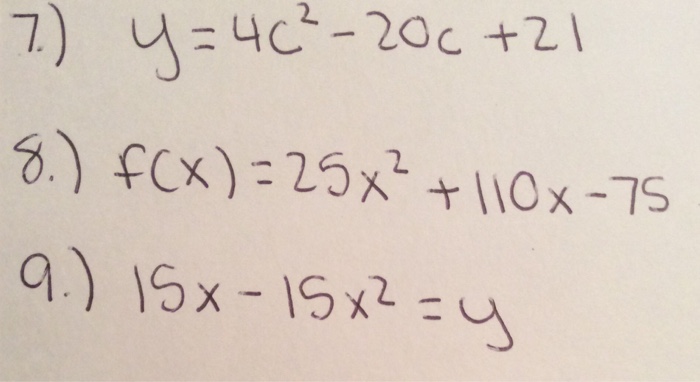 7.) y = 4c² - 20c + 21
8.) f(x) = 25x² + 110x - 75
9.) 15x - 15x² = y